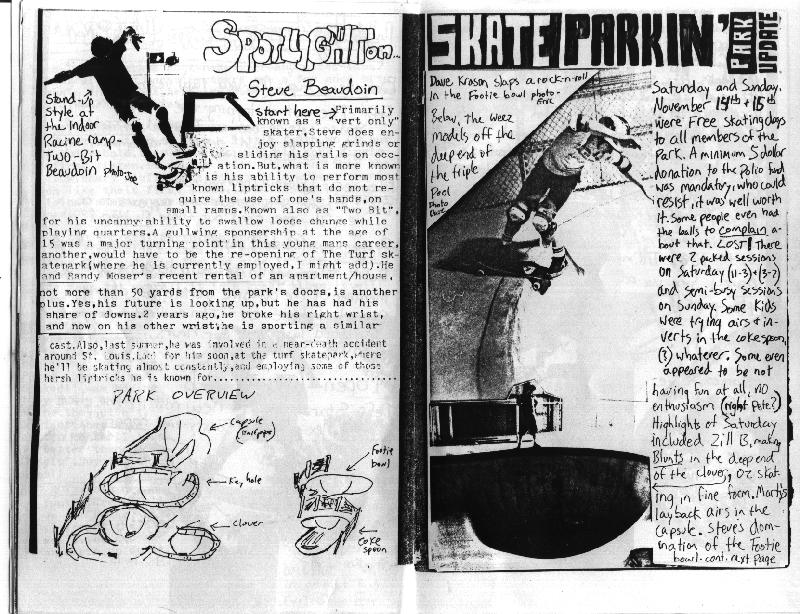 SPOTLIGHT on...
Steve Beaudoin
Stand-up
Style at
the Indoor
Racine ramp-
Two-Bit
Beaudoin photo-Joe
start here → Primarily
known as a "vert only"
skater, Steve does en-
joy slapping grinds or
sliding his rails on occ-
ation.But,what is more known
is his ability to perform most
known liptricks that do not re-
quire the use of one's hands,on
small ramps.Known also as "Two Bit",
for his uncanny ability to swallow loose change while
playing quarters.A gullwing sponsership at the age of
15 was a major turning point in this young mans career,
another,would have to be the re-opening of The Turf sk-
atepark(where he is currently employed,I might add).He
and Randy Moser's recent rental of an apartment/house,
not more than 50 yards from the park's doors,is another
plus.Yes,his future is looking up,but he has had his
share of downs.2 years ago,he broke his right wrist,
and now on his other wrist,he is sporting a similar
cast.Also,last summer,he was involved in a near-death accident
around St. Louis.Look for him soon,at the turf skatepark,where
he'll be skating almost constantly,and employing some of those
harsh liptricks he is known for..............................
PARK OVERVIEW
Capsule
(halfpipe)
Key hole
Clover
Footie
bowl
Coke
spoon
SKATE PARKIN'
PARK
UPDATE
Dave Krason slaps a rock-n-roll
in the Footie bowl photo-
Eric
Below, the weez
models off the
deep end of
the triple
Pool
Photo
Saturday and Sunday,
November 14th + 15th
were Free skating days
to all members of the
Park. A minimum 5 dollar
donation to the Polio fund
was mandatory, who could
resist, it was well worth
it. Some people even had
the balls to complain a-
bout that. LOST! There
were 2 packed sessions
on Saturday (11-3)+(3-7)
and semi-busy sessions
on Sunday. Some kids
were trying airs + in-
verts in the coke spoon,
(?) whatever. Some even
appeared to be not
having fun at all, no
enthusiasm (right Pete?)
Highlights of Saturday
included Zill B, making
Blunts in the deep end
of the clover, Oz skat-
ing in fine form. Marty's
layback airs in the
Capsule. Steves dom-
ination of the Footie
bowl- cont. next page